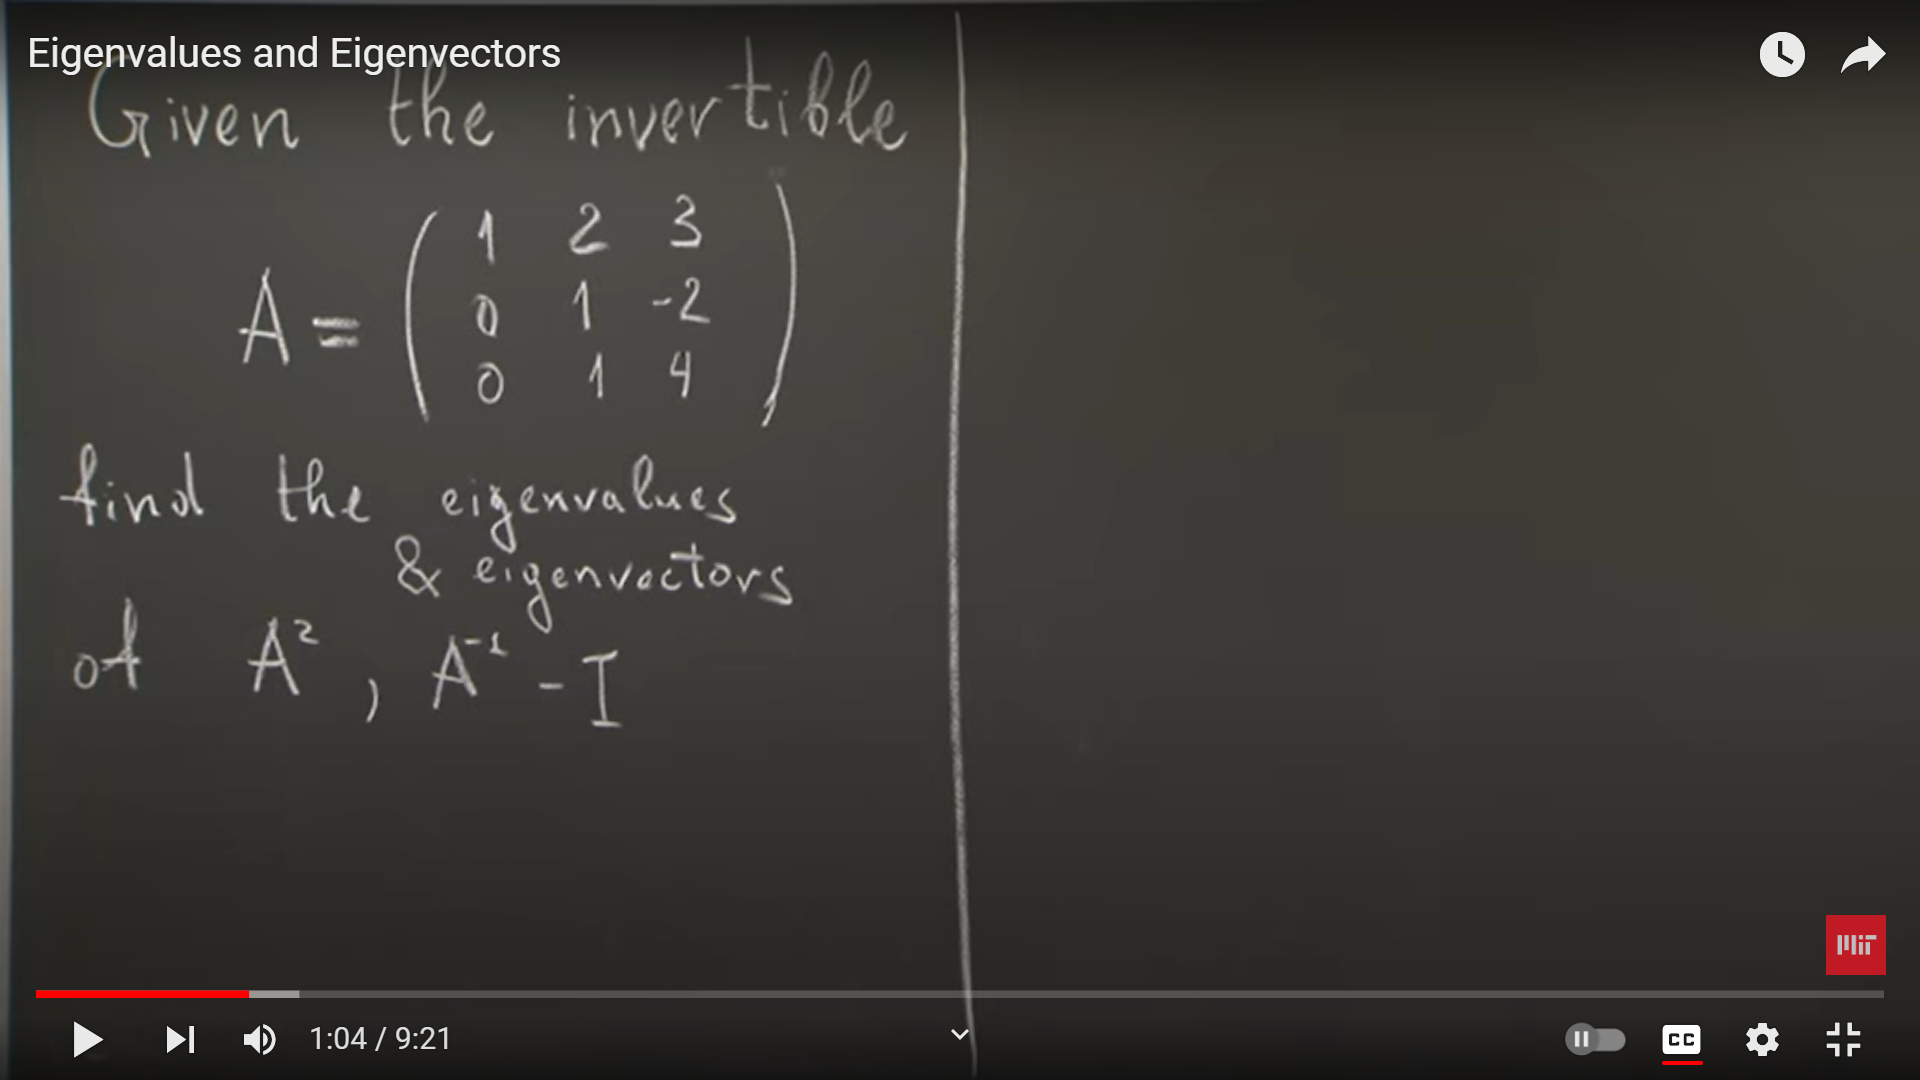 Eigenvalues and Eigenvectors
Given the invertible
A = ( 1 2 3
0 1 -2
0 1 4 )
find the eigenvalues
& eigenvectors
of A², A⁻¹ - I
MIT
1:04 / 9:21
CC